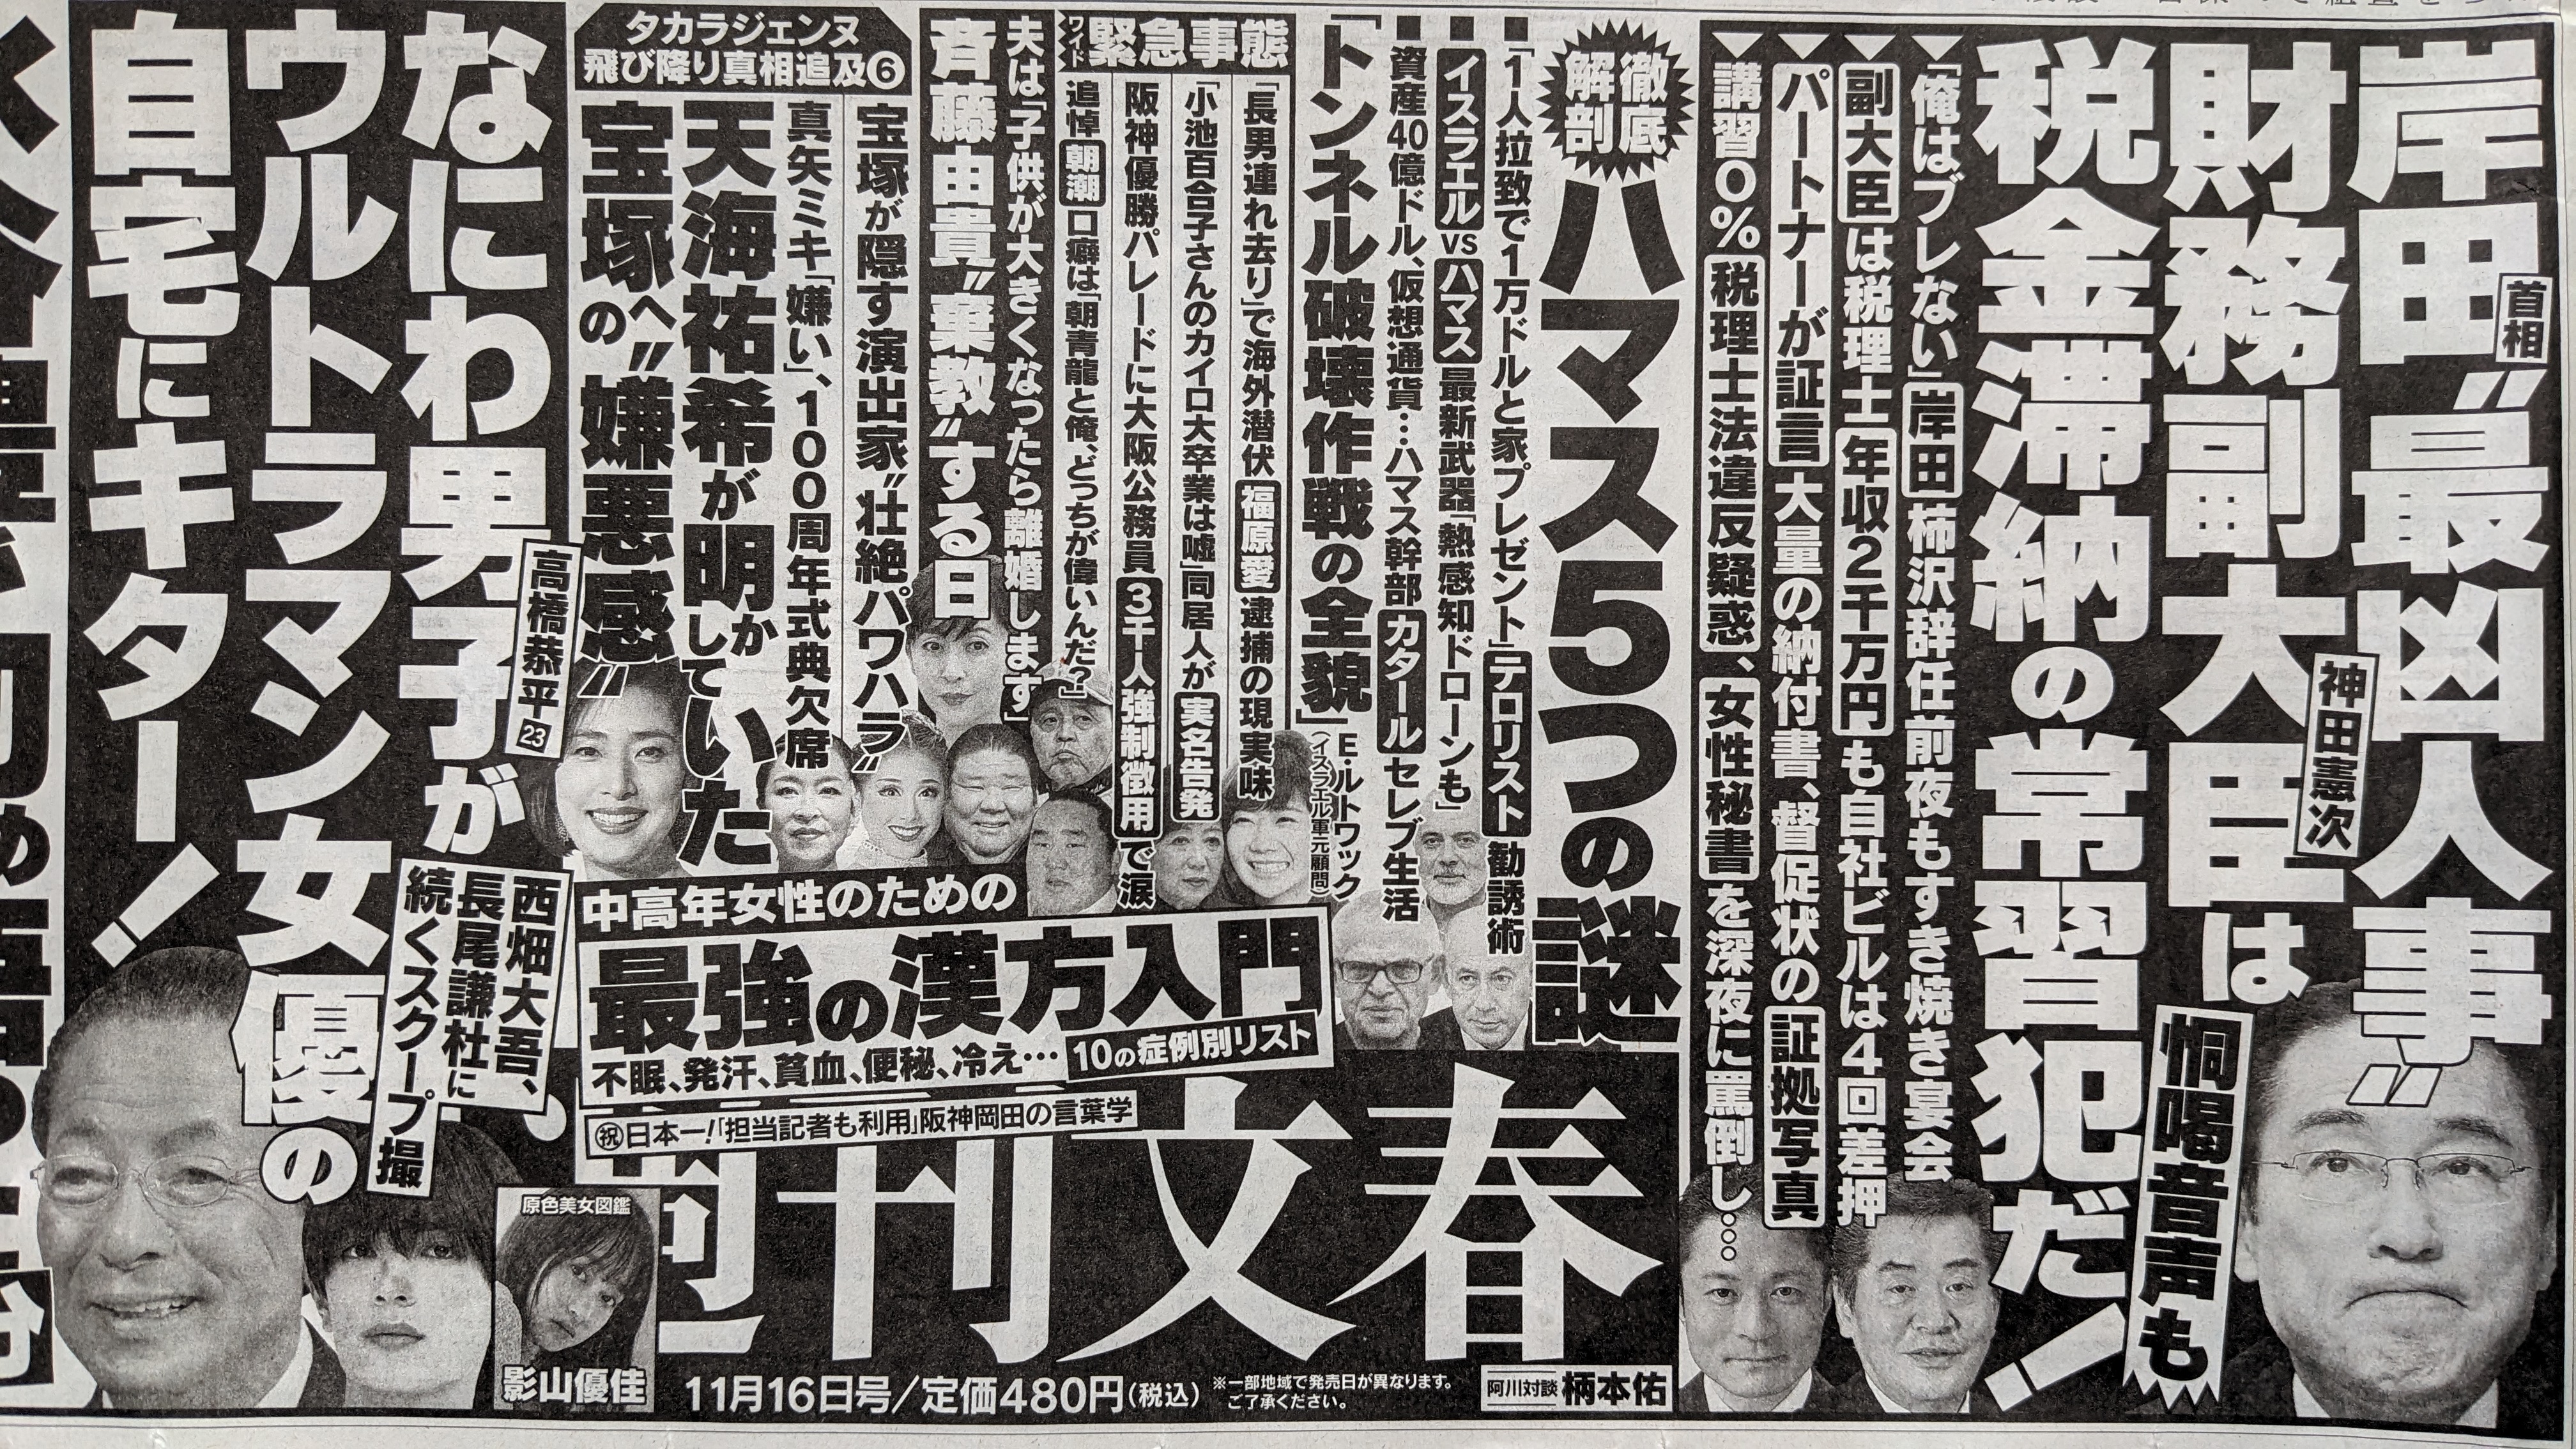 岸田首相“最凶人事”
財務副大臣は
神田憲次
税金滞納の常習犯だ!
恫喝音声も
▼「俺はブレない」岸田 柿沢辞任前夜もすき焼き宴会
▼副大臣は税理士 年収2千万円も自社ビルは4回差押
▼パートナーが証言 大量の納付書、督促状の証拠写真
▼講習0% 税理士法違反疑惑、女性秘書を深夜に罵倒し…
徹底解剖
ハマス5つの謎
■「1人拉致で1万ドルと家プレゼント」テロリスト勧誘術
■イスラエルvsハマス 最新武器「熱感知ドローンも」
■資産40億ドル、仮想通貨…ハマス幹部カタールセレブ生活
■「トンネル破壊作戦の全貌」
E・ルトワック
(イスラエル軍元顧問)
ワイド 緊急事態
「長男連れ去り」で海外潜伏 福原愛 逮捕の現実味
「小池百合子さんのカイロ大卒業は嘘」同居人が実名告発
阪神優勝パレードに大阪公務員3千人強制徴用で涙
追悼 朝潮 口癖は「朝青龍と俺、どっちが偉いんだ?」
夫は「子供が大きくなったら離婚します」
斉藤由貴“棄教”する日
タカラジェンヌ
飛び降り真相追及⑥
宝塚が隠す演出家“壮絶パワハラ”
真矢ミキ「嫌い」、100周年式典欠席
天海祐希が明かしていた
宝塚への“嫌悪感”
中高年女性のための
最強の漢方入門
不眠、発汗、貧血、便秘、冷え…
10の症例別リスト
㊗日本一!「担当記者も利用」阪神岡田の言葉学
なにわ男子が
高橋恭平23
ウルトラマン女優の
自宅にキター!
西畑大吾、
長尾謙杜に
続くスクープ撮
原色美女図鑑
影山優佳
週刊文春
11月16日号/定価480円(税込)
※一部地域で発売日が異なります。
ご了承ください。
阿川対談 柄本佑